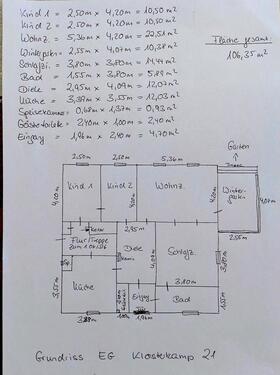 Kind 1 = 2,50m x 4,20m = 10,50 m²
Kind 2 = 2,50m x 4,20m = 10,50 m²
Wohnz. = 5,36m x 4,20m = 22,51 m²
Wintergarten = 2,55m x 4,07m = 10,38 m²
Schlafzi. = 3,80m x 3,80m = 14,44 m²
Bad = 1,55m x 3,80m = 5,89 m²
Diele = 2,95m x 4,09m = 12,07 m²
Küche = 3,39m x 3,55m = 12,03 m²
Speisekammer = 0,68m x 1,37m = 0,93 m²
Gästetoilette = 2,40m x 1,00m = 2,40 m²
Eingang = 1,96m x 2,40m = 4,70 m²
Fläche gesamt:
106,35 m²
Garten
2,50m
2,50m
5,36m
4,20m
Kind 1
Kind 2
Wohnz.
Winter-
garten
4,07m
2,55m
2,95m
Flur/Treppe
zum 1.OG/DG
Diele
4,09m
Schlafzi.
3,80m
3,80m
3,55m
Küche
Eingang
Bad
1,55m
3,39m
1,00m
1,96m
Grundriss EG Klosterkamp 21